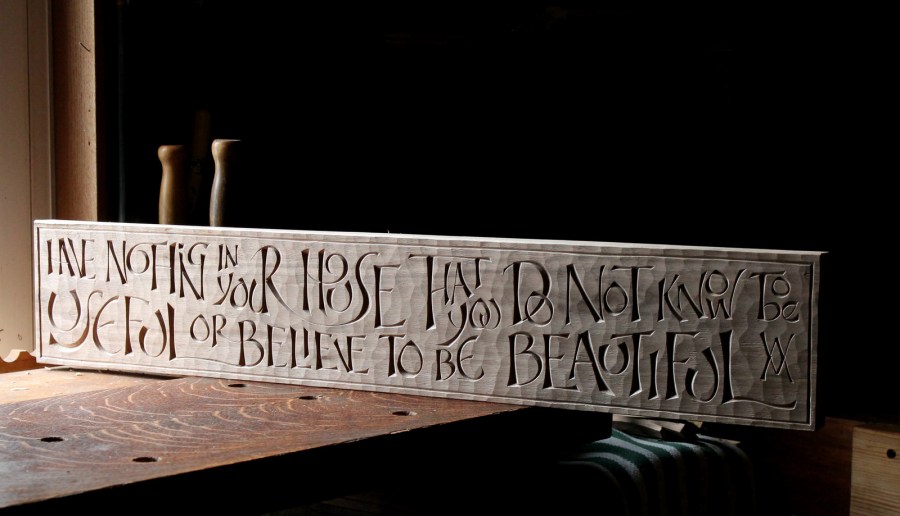 HAVE NOTHING IN YOUR HOUSE THAT YOU DO NOT KNOW TO be
USEFUL OR BELIEVE TO BE BEAUTIFUL WM